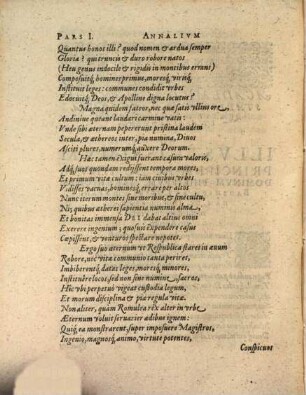 PARS I. ANNALIVM
Quantus honos illi? quod nomen & ardua semper
Gloria? qui truncis & duro robore natos
(Heu genus indocile & rigidis in montibus errans)
Composuitq́; homines primus, moresq́; virosq́;
Instituit leges: communes condidit vrbes
Edocuitq́; Deos, & Apolline digna locutus?
Magna quidem fateor, nec quæ satis vllius ore
Audiuimus queant laudum carmine vates:
Vnde sibi æternam pepererunt pristina laudem
Secula, & æthereos inter, pia numina, Diuos
Ascijt plures, numerumq́; auxere Deorum.
Hæc tamen exigui fuerant casura valoris,
Adq́; suos quondam redissent tempora mores,
Et primum vitæ cultum: iam ciuibus vrbes
Vidisses vacuas, homines q́; errare per altos
Nunc iterum montes sine moribus, & sine cultu,
Ni; quibus ætheris sapientia numinis alma,
Et bonitas immensa DEI dabat altius omni
Exerere ingenium; quosuis expendere casus
Cœpissent, & venturos spectare nepotes.
Ergo suo æternum vt Respublica staret in æuum
Robore, nec vitæ communio tanta periret,
Imbiberentq́; datas leges, moresq́; minores,
Instituêre locos, sedium sine nomine, sacros,
Hic vbi perpetuò vigeat custodia legum,
Et morum disciplina & pia regula vitæ.
Non aliter, quàm Romulea rex alter in vrbe
Æternum voluit seruarier ædibus ignem:
Quiq́; ea monstrarent, super imposuere Magistros,
Ingenio, magnoq́; animo, virtute potentes,
Conspicuos